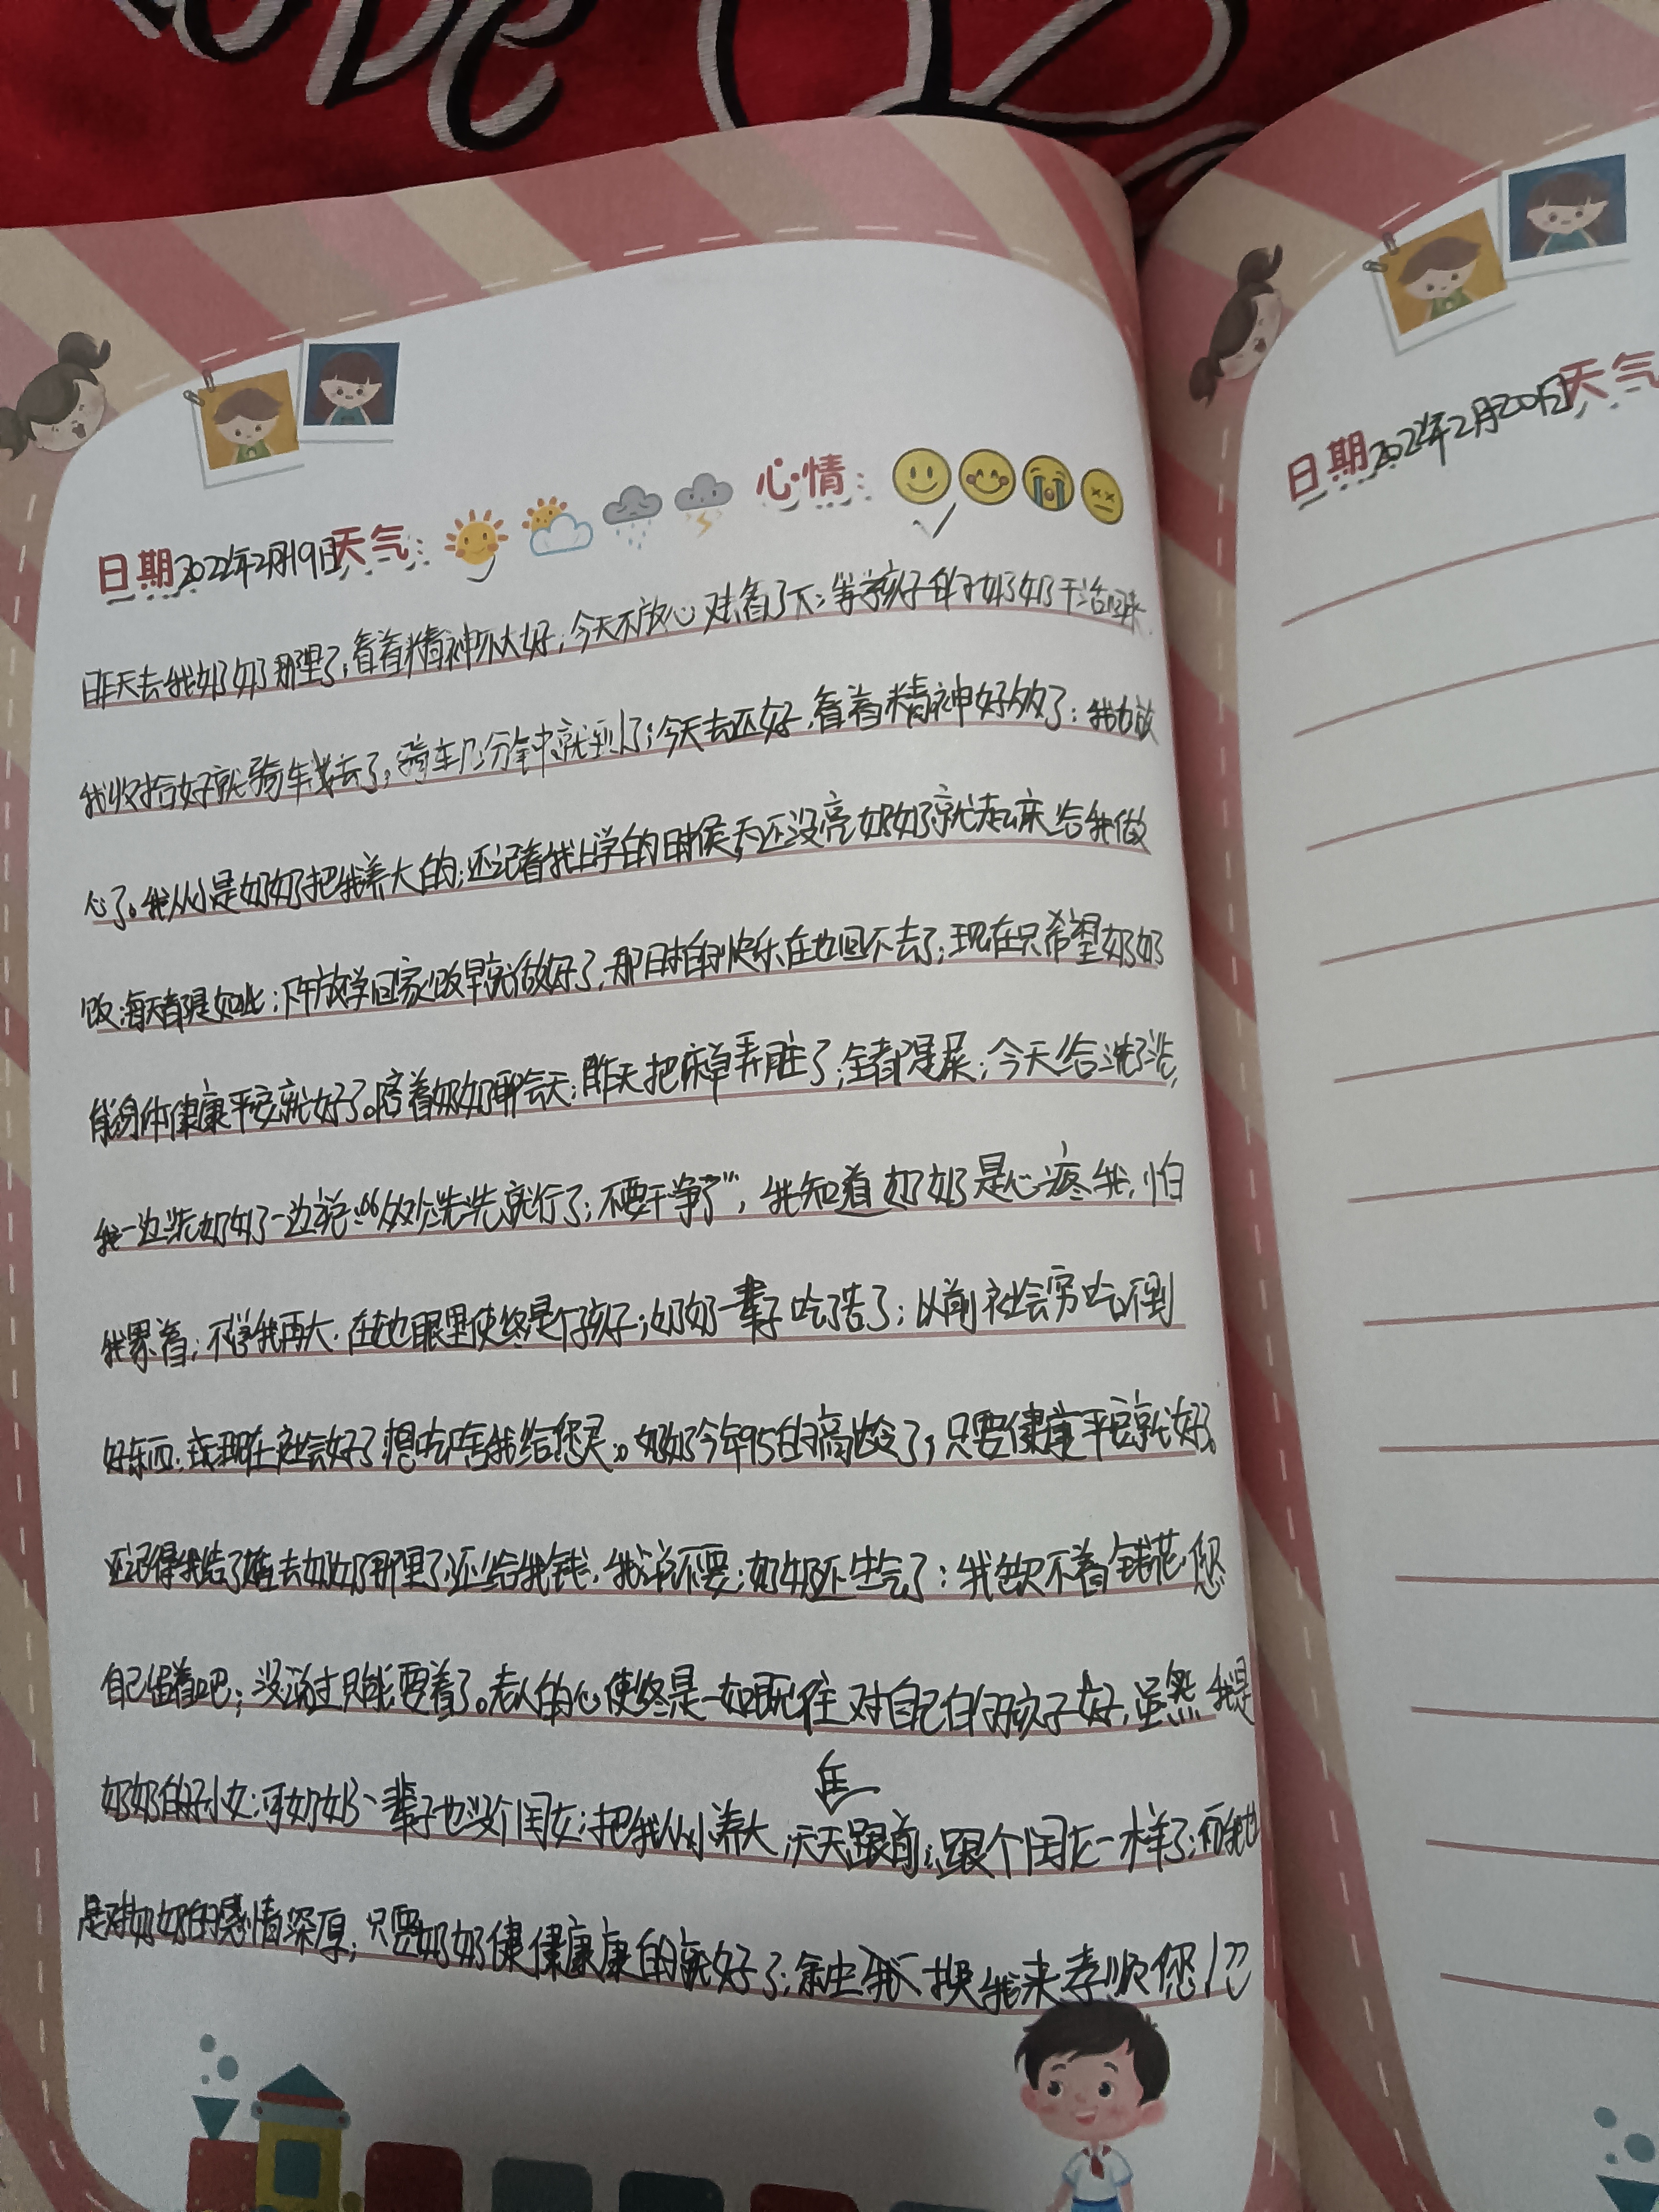 日期2022年2月19日天气: 心情:
昨天去我奶奶那里了,看着精神不大好;今天不放心又去看了下;等孩子他爷奶奶干活回来
我收拾好就骑车去了,骑车几分钟就到了;今天去还好,看着精神好多了;我也放
心了。我从小是奶奶把我养大的;还记着我上学的时侯,天还没亮奶奶就起床给我做
饭;每天都是如此;下午放学回家饭早就做好了,那时的快乐在也回不去了;现在只希望奶奶
能身体健康平安就好了。陪着奶奶聊会天;昨天把床单弄脏了;全都是尿;今天给洗了洗,
我一边洗奶奶一边说:“少洗洗就行了;不要干净了”,我知道奶奶是心疼我,怕
我累着;不管我再大,在她眼里使终是个孩子;奶奶一辈子吃了苦了;以前社会穷吃不到
好东西;现在社会好了想吃啥我给您买。奶奶今年95的高龄了;只要健康平安就好。
还记得我结了婚去奶奶那里了,还给我钱,我说不要;奶奶还生气了;我说不着钱花您
自己留着吧;没办法只能要着了。老人的心使终是一如既往对自己的孩子好,虽然我是
奶奶的孙女;可奶奶一辈子也没个闺女;把我从小养大,天天在跟前;跟个闺女一样了;而我也
是对奶奶的感情深厚;只要奶奶健健康康的就好了;余生我换我来孝顺您!
日期2022年2月20日天气